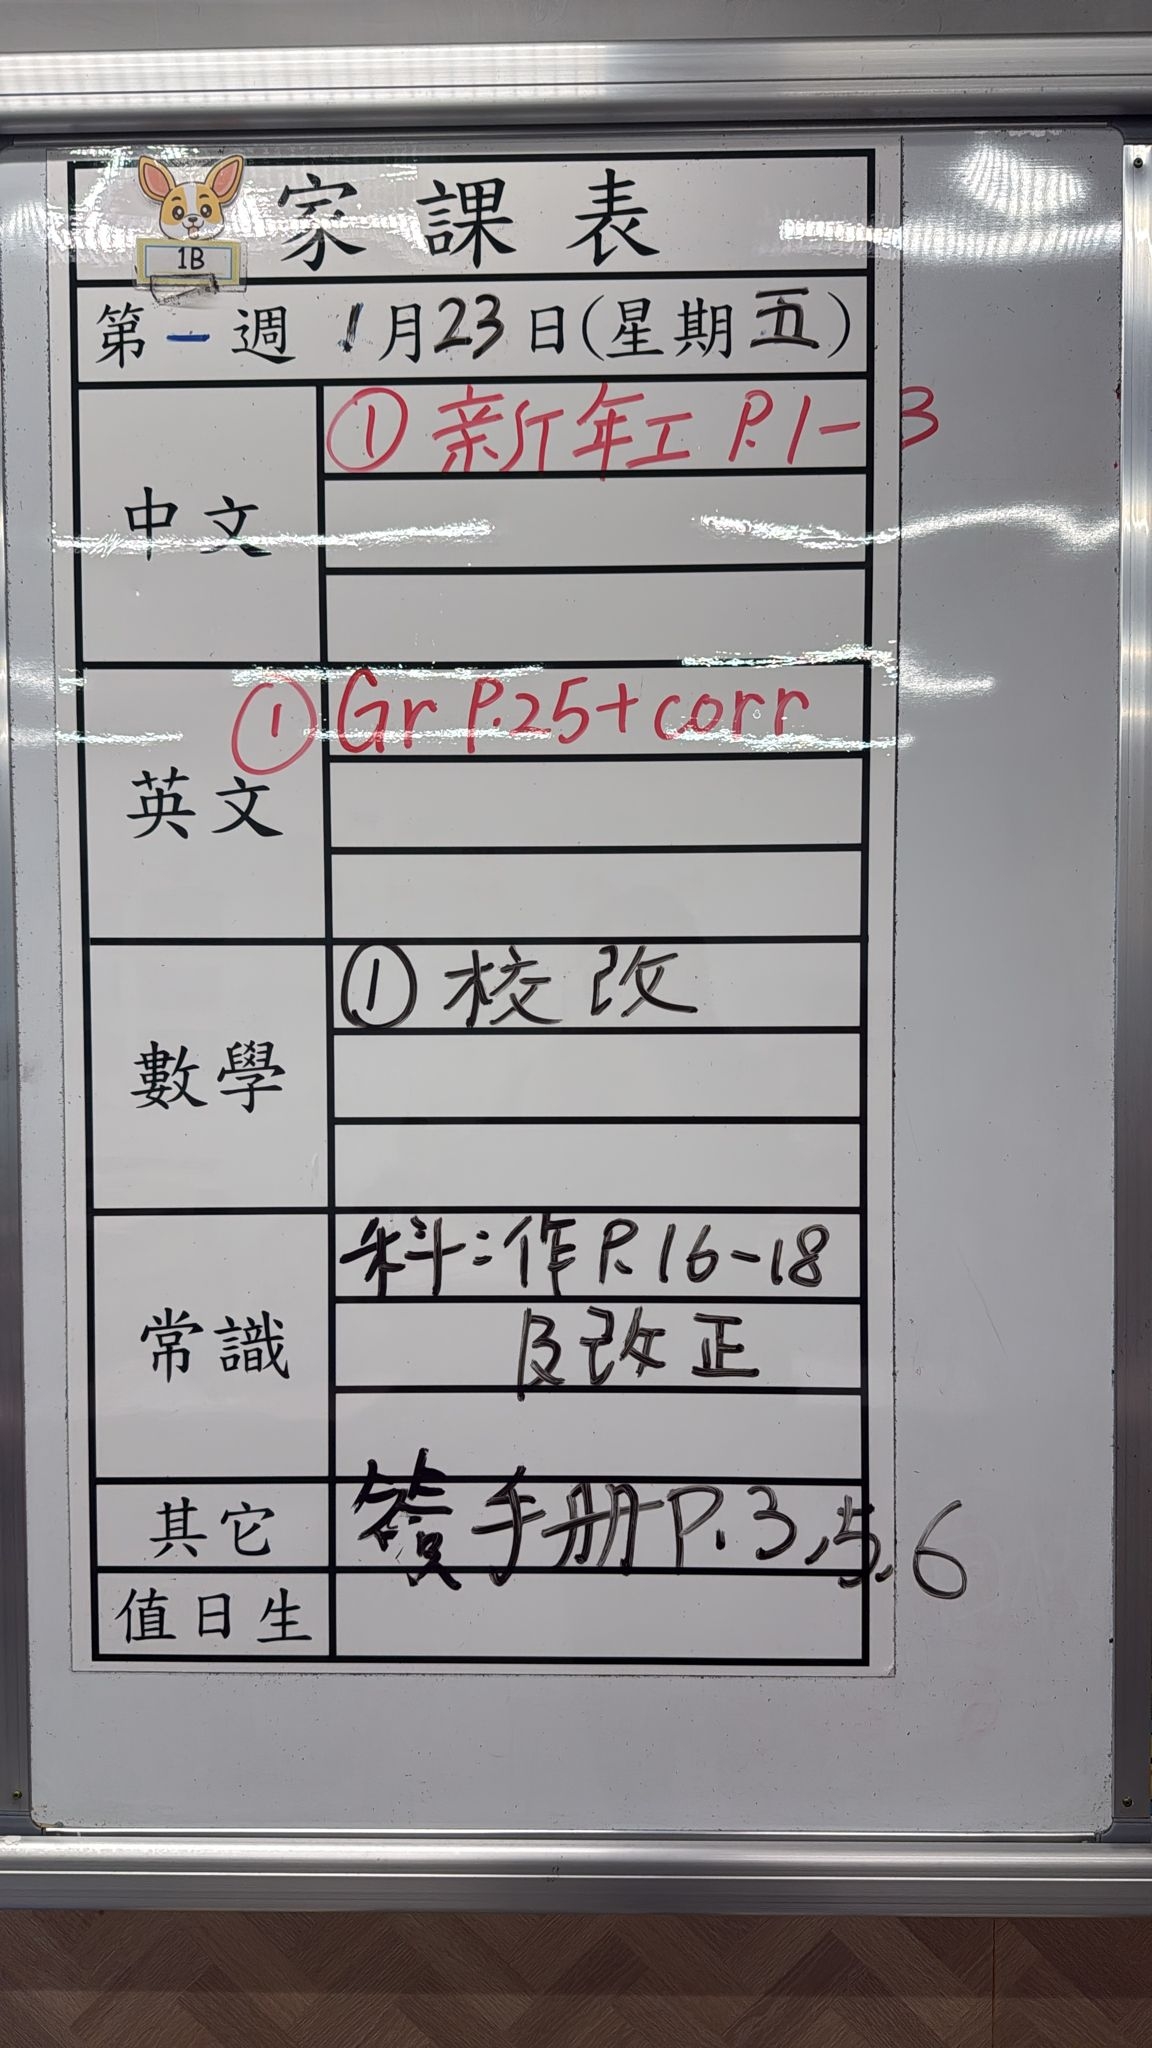 家課表
1B
第一週 1月23日(星期五)
中文
① 新年工 P.1-3
英文
① Gr P.25+corr
數學
① 校改
常識
科:作P.16-18
及改正
其它
簽手册P.3,5,6
值日生